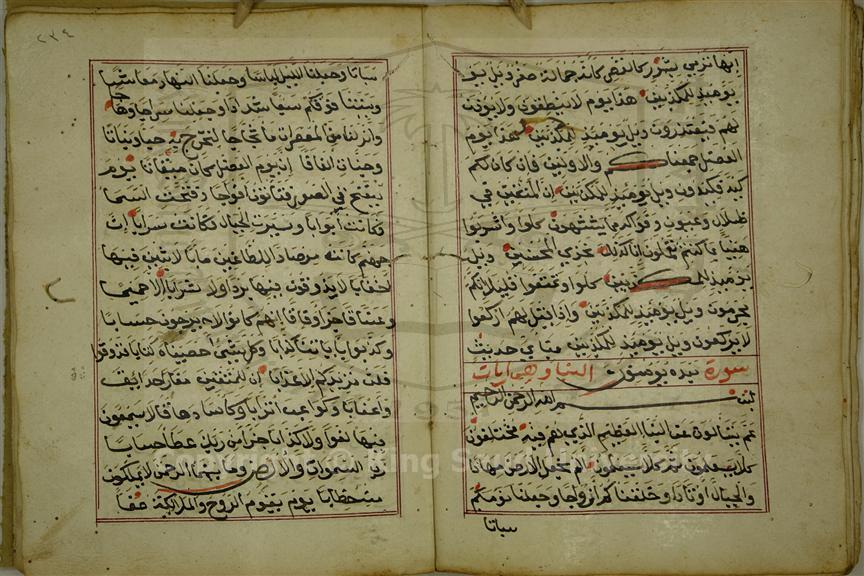 إنها ترمي بشرر كالقصر كانه جمالة صفر ويل يو
يومئذ للمكذبين هذا يوم لا ينطقون ولا يوذن
لهم فيعتذرون ويل يومئذ للمكذبين هذا يوم
الفصل جمعناكم والاولين فان كان لكم
كيد فكيدون ويل يومئذ للمكذبين ان المتقين في
ظلال وعيون وفواكه مما يشتهون كلوا واشربوا
هنيئا بما كنتم تعملون انا كذلك نجزي المحسنين ويل
يومئذ للمكذبين كلوا وتمتعوا قليلا انكم
مجرمون ويل يومئذ للمكذبين واذا قيل لهم اركعوا
لا يركعون ويل يومئذ للمكذبين فباي حديث
سورة بعده يومنون النبا وهي ايات
بسم الله الرحمن الرحيم
عم يتسالون عن النبا العظيم الذي هم فيه مختلفون
كلا سيعلمون ثم كلا سيعلمون الم نجعل الارض مهادا
والجبال اوتادا وخلقناكم ازواجا وجعلنا نومكم
سباتا
٢٣٤
سباتا وجعلنا الليل لباسا وجعلنا النهار معاشا
وبنينا فوقكم سبعا شدادا وجعلنا سراجا وهاجا
وانزلنا من المعصرات ماء ثجاجا لنخرج به حبا ونباتا
وجنات الفافا ان يوم الفصل كان ميقاتا يوم
ينفخ في الصور فتاتون افواجا وفتحت السما
فكانت أبوابا وسيرت الجبال فكانت سرابا إن
جهنم كانت مرصادا للطاغين مآبا لابثين فيها
احقابا لا يذوقون فيها بردا ولا شرابا الا حميما
وغساقا جزا وفاقا انهم كانوا لا يرجون حسابا
وكذبوا باياتنا كذابا وكل شي احصيناه كتابا فذوقوا
فلن نزيدكم الا عذابا ان للمتقين مفازا حدائق
واعنابا وكواعب اترابا وكاسا دهاقا لا يسمعون
فيها لغوا ولا كذابا جزا من ربك عطا حسابا
رب السموات والارض وما بينهما الرحمن لا يملكون
منه خطابا يوم يقوم الروح والملائكة صفا
Copyright © King Saud University